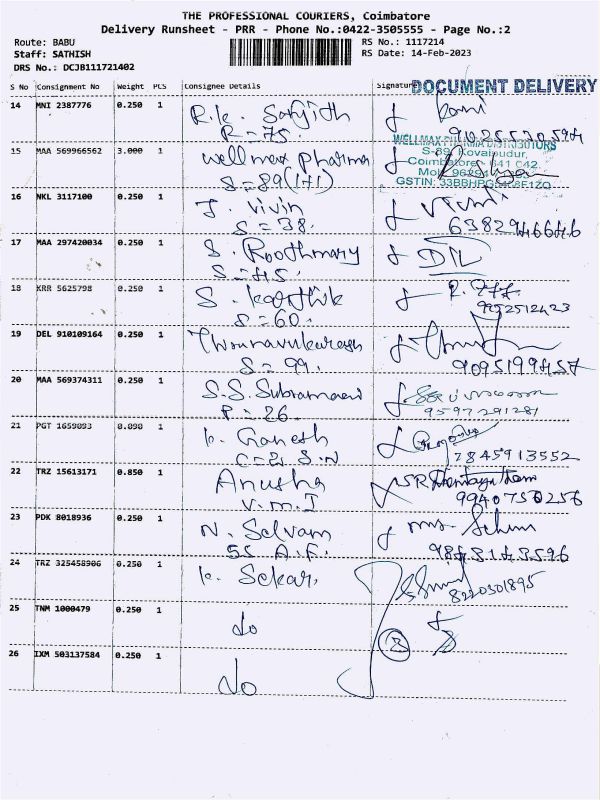 THE PROFESSIONAL COURIERS, Coimbatore
Delivery Runsheet - PRR - Phone No.:0422-3505555 - Page No.:2
Route: BABU
Staff: SATHISH
DRS No.: DCJB111721402
RS No.: 1117214
RS Date: 14-Feb-2023
S No Consignment No Weight PLS Consignee Details Signature
DOCUMENT DELIVERY
14 MNI 2387776 0.250 1 R.K. R=75. 9025530594
15 MAA 569966562 3.000 1 Wellmax Pharma S=89(1+1)
WELLMAX PHARMA DISTRIBUTORS
S-89, Kovaipudur,
Coimbatore - 641 042.
16 NKL 3117100 0.250 1 J. Vivin S=38.
17 MAA 297420034 0.250 1 S. Roothmary S=45.
18 KRR 5625798 0.250 1 S. Karthik S=60. 9252512423
19 DEL 910109164 0.250 1 S=99. 9095199457
20 MAA 569374311 0.250 1 S.S. Subramani P=26. 9597291281
21 PGT 1659093 0.090 1 K. Ganesh 7845913552
22 TRZ 15613171 0.850 1 Anusha V.M.I 9940750256
23 PDK 8018936 0.250 1 N. Selvam 55 A.F. 9843143596
24 TRZ 325458906 0.250 1 K. Sekar. 8220301895
25 TNM 1000479 0.250 1 do
26 IXM 503137584 0.250 1 do